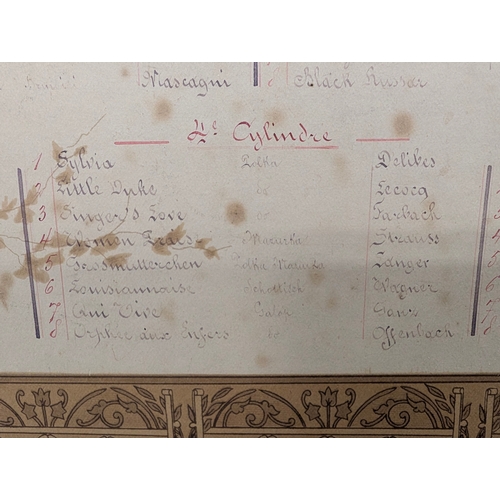 Mascagni 8 Black Hussar
4e Cylindre
1 Sylvia Polka Delibes
2 Little Duke do Lecocq
3 Singer's Love do Farbach
4 Women Tears Mazurka Strauss
5 Grossmütterchen Polka Mazurka Langer
6 Louisiannaise Schottisch Wagner
7 Qui Vive Galop Ganz
8 Orphée aux Enfers do Offenbach